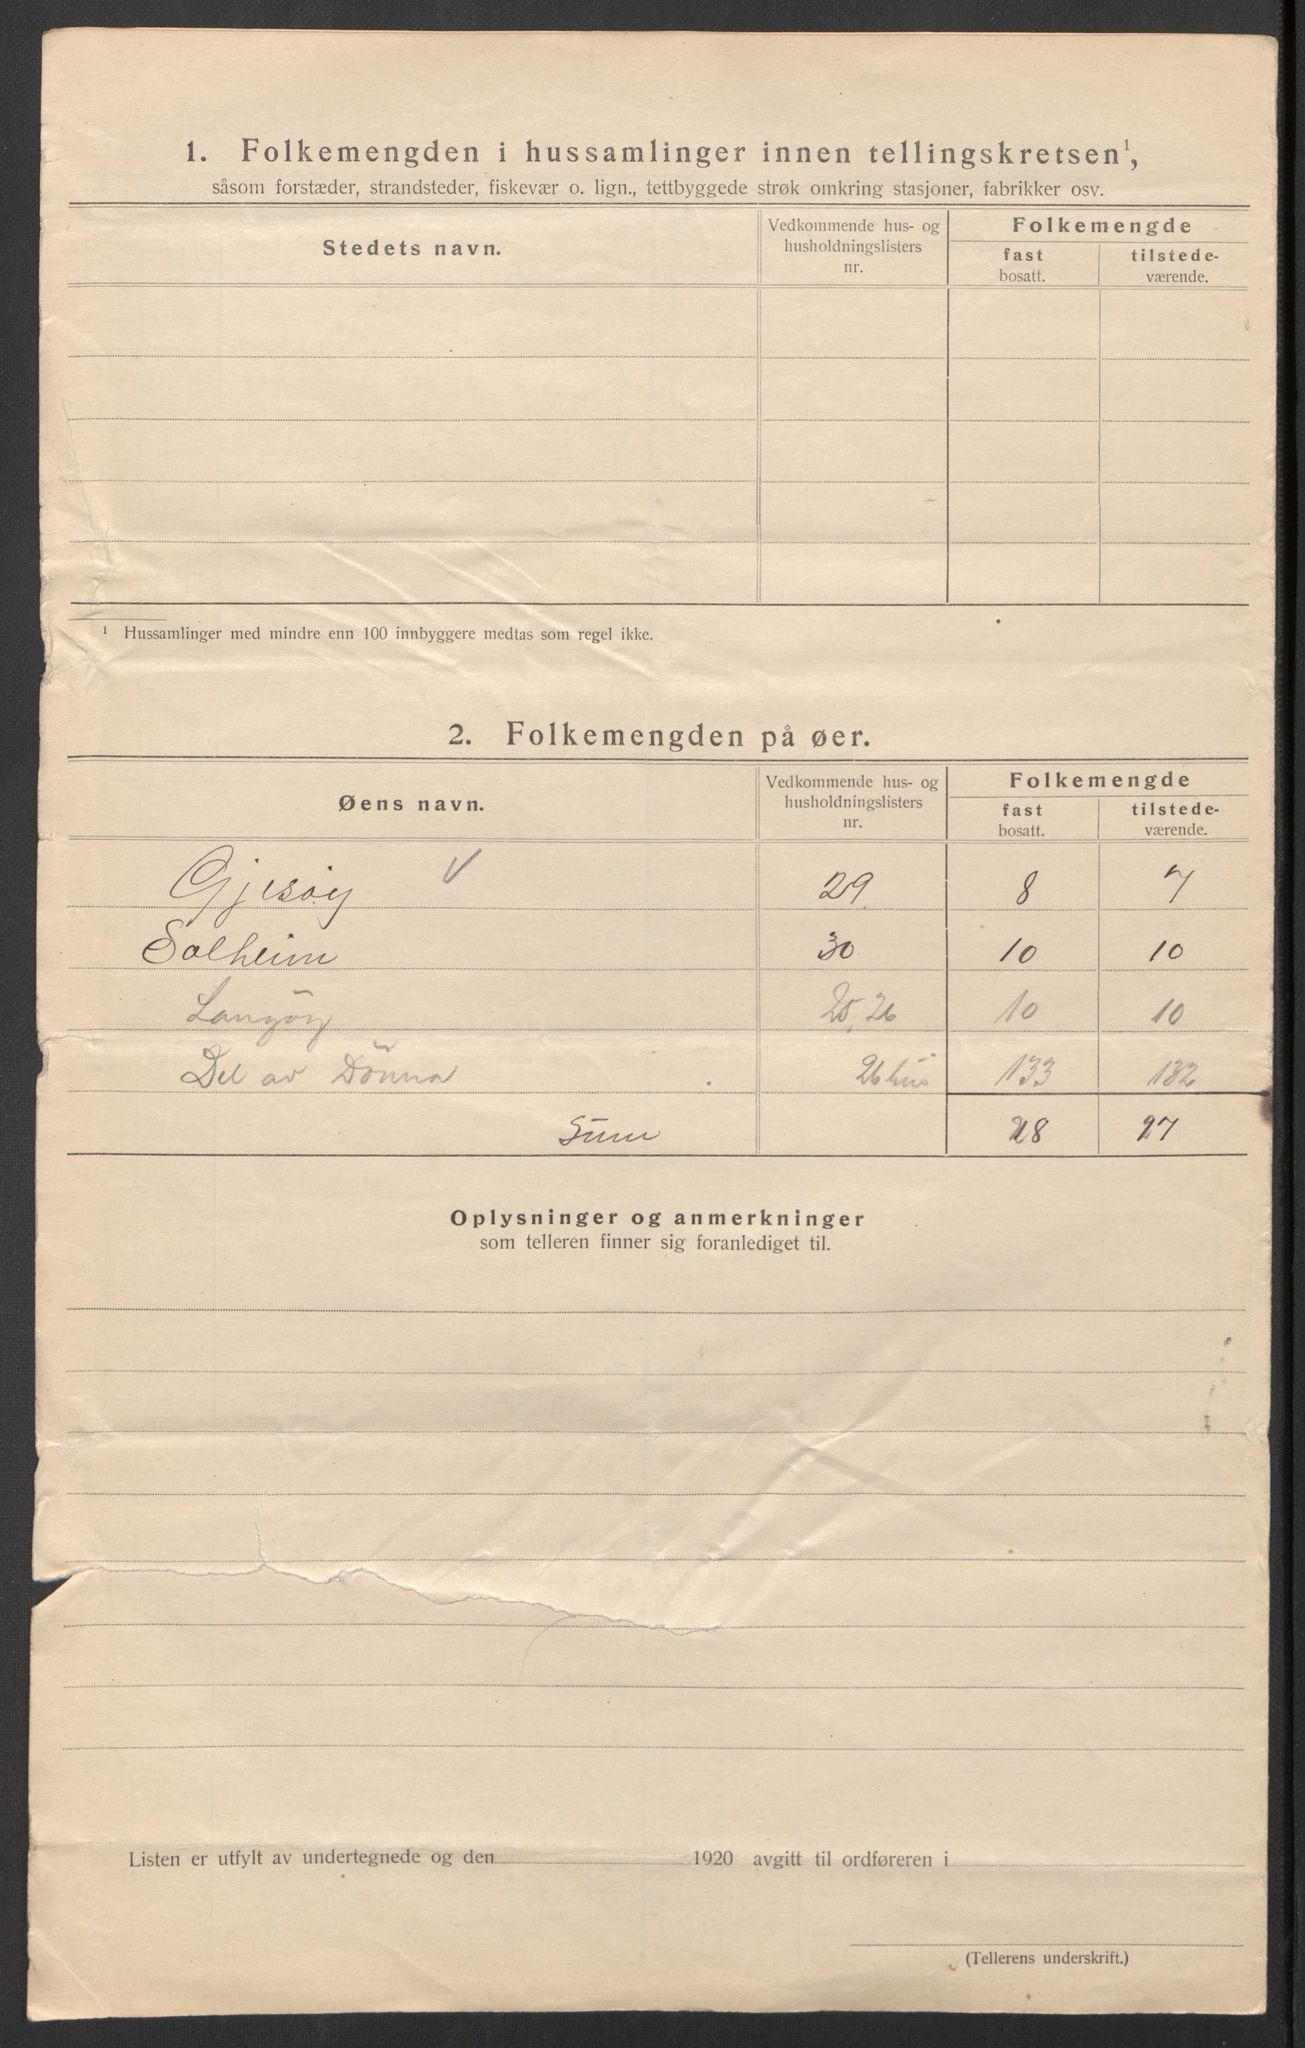 1. Folkemengden i hussamlinger innen tellingskretsen¹,
såsom forstæder, strandsteder, fiskevær o. lign., tettbyggede strøk omkring stasjoner, fabrikker osv.
Stedets navn.
Vedkommende hus- og
husholdningslisters
nr.
Folkemengde
fast
bosatt.
tilstede-
værende.
¹ Hussamlinger med mindre enn 100 innbyggere medtas som regel ikke.
2. Folkemengden på øer.
Øens navn.
Vedkommende hus- og
husholdningslisters
nr.
Folkemengde
fast
bosatt.
tilstede-
værende.
Gjesöy V 29 8 7
Solheim 30 10 10
Langöy 25, 26 10 10
Del av Dönna 26 hus 133 132
Sum 28 27
Oplysninger og anmerkninger
som telleren finner sig foranlediget til.
Listen er utfylt av undertegnede og den 1920 avgitt til ordføreren i
(Tellerens underskrift.)